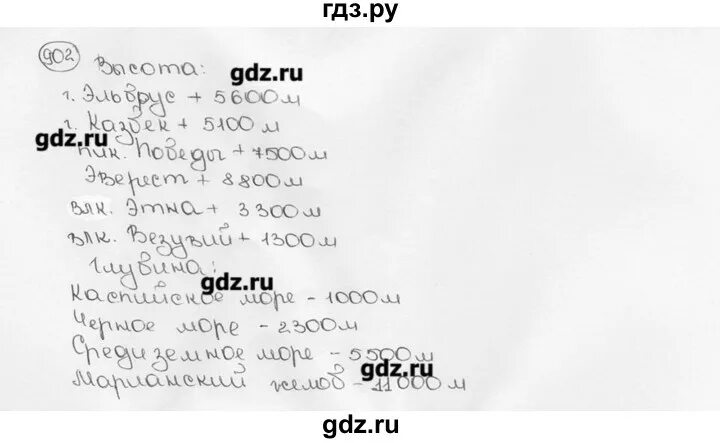 гдз.ру
902
Высота:
gdz.ru
г. Эльбрус + 5600 м
г. Казбек + 5100 м
gdz.ru
пик. Победы + 7500 м
Эверест + 8800 м
влк. Этна + 3300 м
влк. Везувий + 1300 м
Глубина:
gdz.ru
Каспийское море - 1000 м
Черное море - 2300 м
Средиземное море - 5500 м
gdz.ru
Марианский желоб - 11000 м
gdz.ru